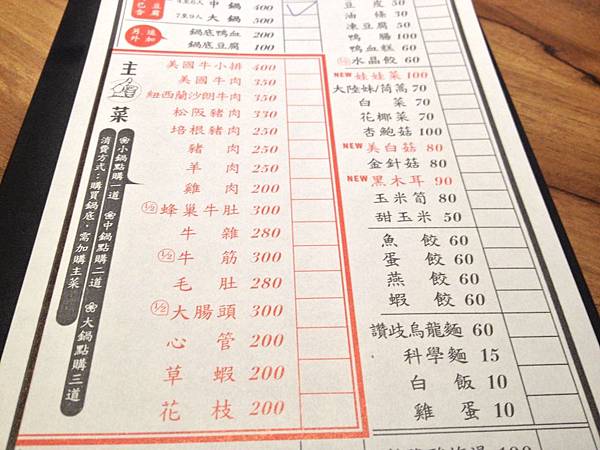 包含 豆腐
4至6人 中鍋 400
7至9人 大鍋 500
另外 追加
鍋底鴨血 200
鍋底豆腐 100
主菜
❀小鍋點購一道 ❀中鍋點購二道 ❀大鍋點購三道
消費方式：購買鍋底，需加購主菜
美國牛小排 400
美國牛肉 350
紐西蘭沙朗牛肉 350
松阪豬肉 330
培根豬肉 250
豬肉 250
羊肉 250
雞肉 200
½ 蜂巢牛肚 300
牛雜 280
½ 牛筋 300
毛肚 280
½ 大腸頭 300
心管 200
草蝦 200
花枝 200
豆皮 50
油條 30
凍豆腐 50
鴨腸 60
鴨血糕 60
½ 水晶餃 60
NEW 娃娃菜 100
大陸妹/茼蒿 70
白菜 70
花椰菜 70
杏鮑菇 100
NEW 美白菇 80
金針菇 80
NEW 黑木耳 90
玉米筍 80
甜玉米 50
魚餃 60
蛋餃 60
燕餃 60
蝦餃 60
讚歧烏龍麵 60
科學麵 15
白飯 10
雞蛋 10